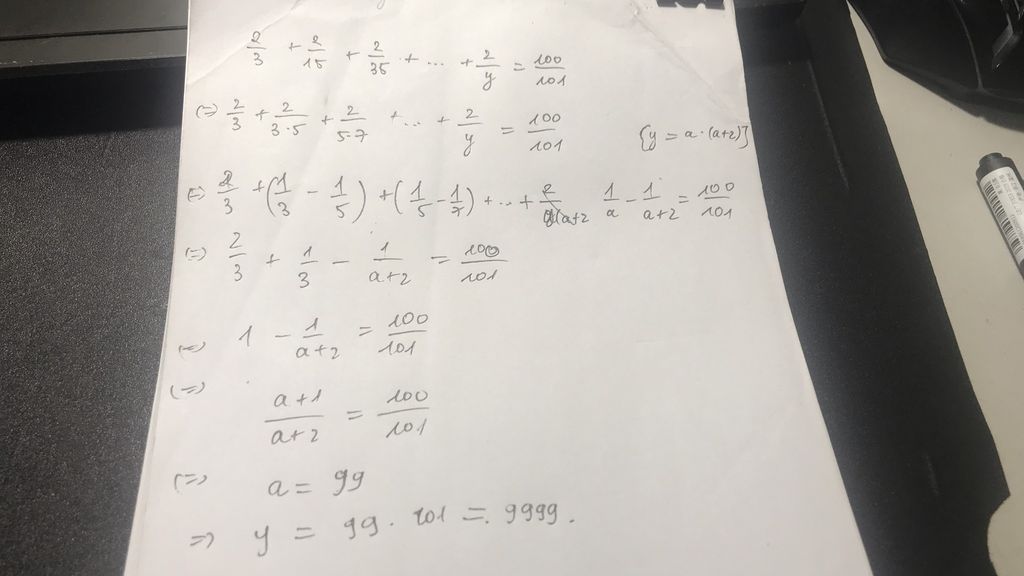 2/3 + 2/15 + 2/35 + ... + 2/y = 100/101
(=) 2/3 + 2/3·5 + 2/5·7 + ... + 2/y = 100/101 {y = a·(a+2)}
(=) 2/3 + (1/3 - 1/5) + (1/5 - 1/7) + ... + 1/a - 1/a+2 = 100/101
(=) 2/3 + 1/3 - 1/a+2 = 100/101
(=) 1 - 1/a+2 = 100/101
(=) a+1/a+2 = 100/101
(=) a = 99
=) y = 99 · 101 = 9999.